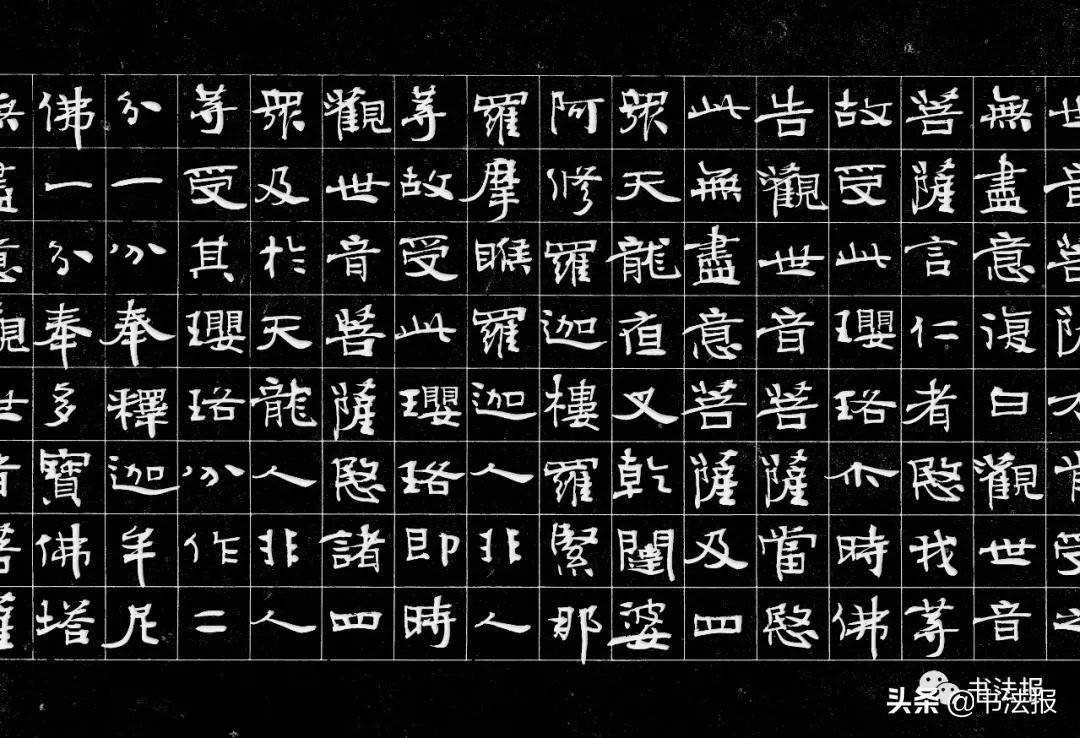 世音菩薩不肯受之
無盡意復白觀世音
菩薩言仁者愍我等
故受此瓔珞尒時佛
告觀世音菩薩當愍
此無盡意菩薩及四
眾天龍夜叉乾闥婆
阿修羅迦樓羅緊那
羅摩睺羅迦人非人
等故受此瓔珞即時
觀世音菩薩愍諸四
眾及於天龍人非人
等受其瓔珞分作二
分一分奉釋迦牟尼
佛一分奉多寶佛塔
無盡意觀世音菩薩
书法报
头条@书法报